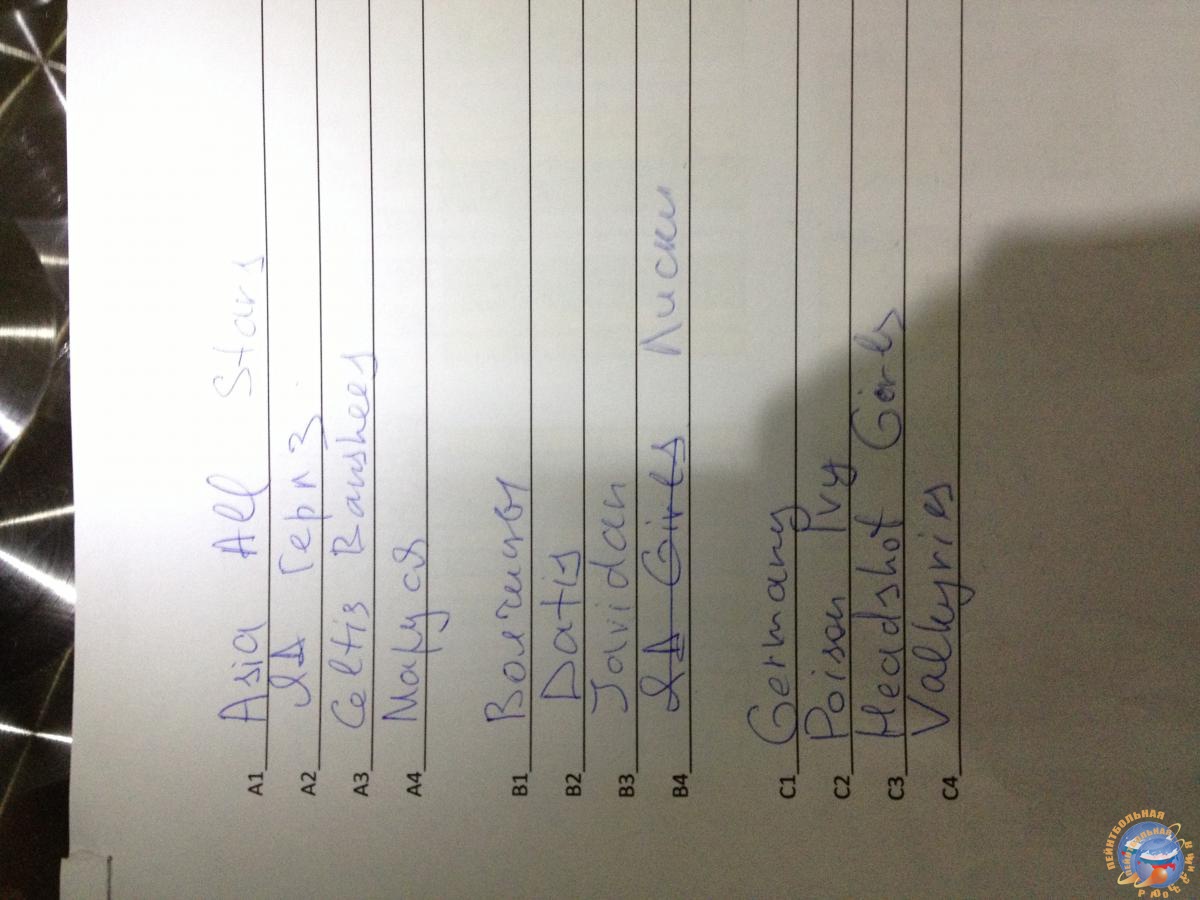 A1 Asia All Stars
A2 ЯД Герлз
A3 Celtis Banshees
A4 Маруся
B1 Волчицы
B2 Datis
B3 Javidan
B4 ЯД Girls Лиски
C1 Germany
C2 Poison Ivy
C3 Headshot Girls
C4 Valkyries
ПЕЙНТБОЛЬНАЯ